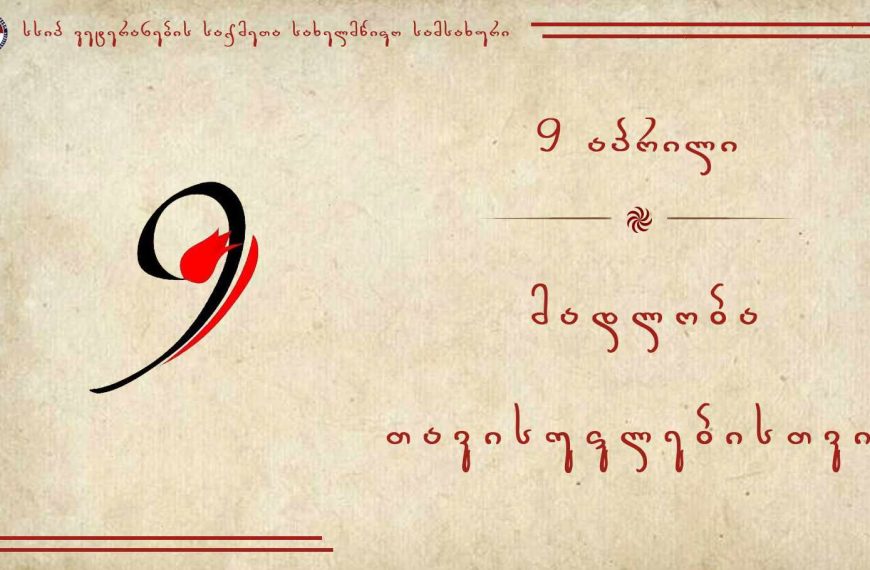 სსიპ ვეტერანების საქმეთა სახელმწიფო სამსახური
9 აპრილი
9
მადლობა
თავისუფლებისთვი